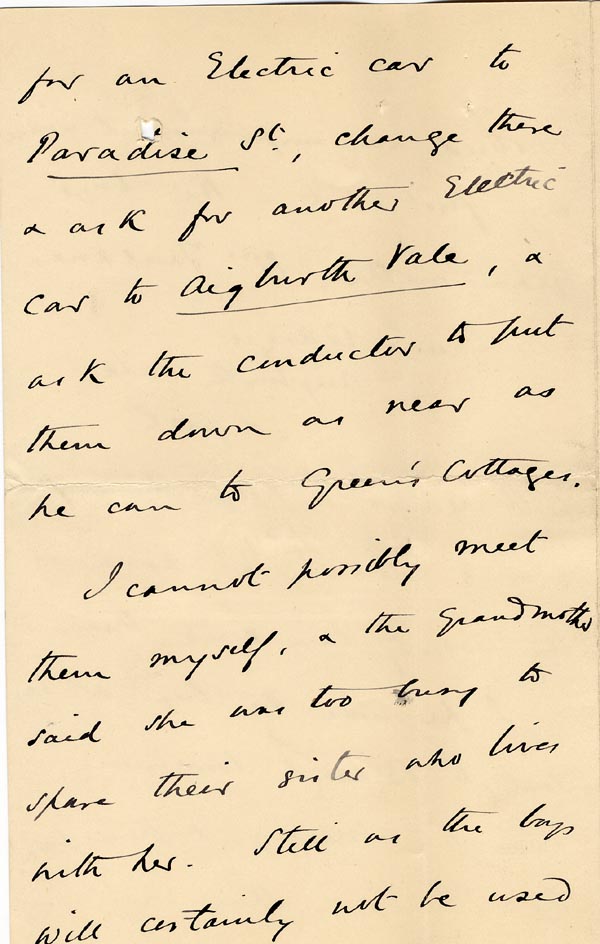 for an Electric car to
Paradise St., change there
& ask for another Electric
car to Aigburth Vale, &
ask the conductor to put
them down as near as
he can to Green's Cottages.
I cannot possibly meet
them myself, & the Grandmother
said she was too busy to
spare their sister who lives
with her. Still as the boys
will certainly not be used